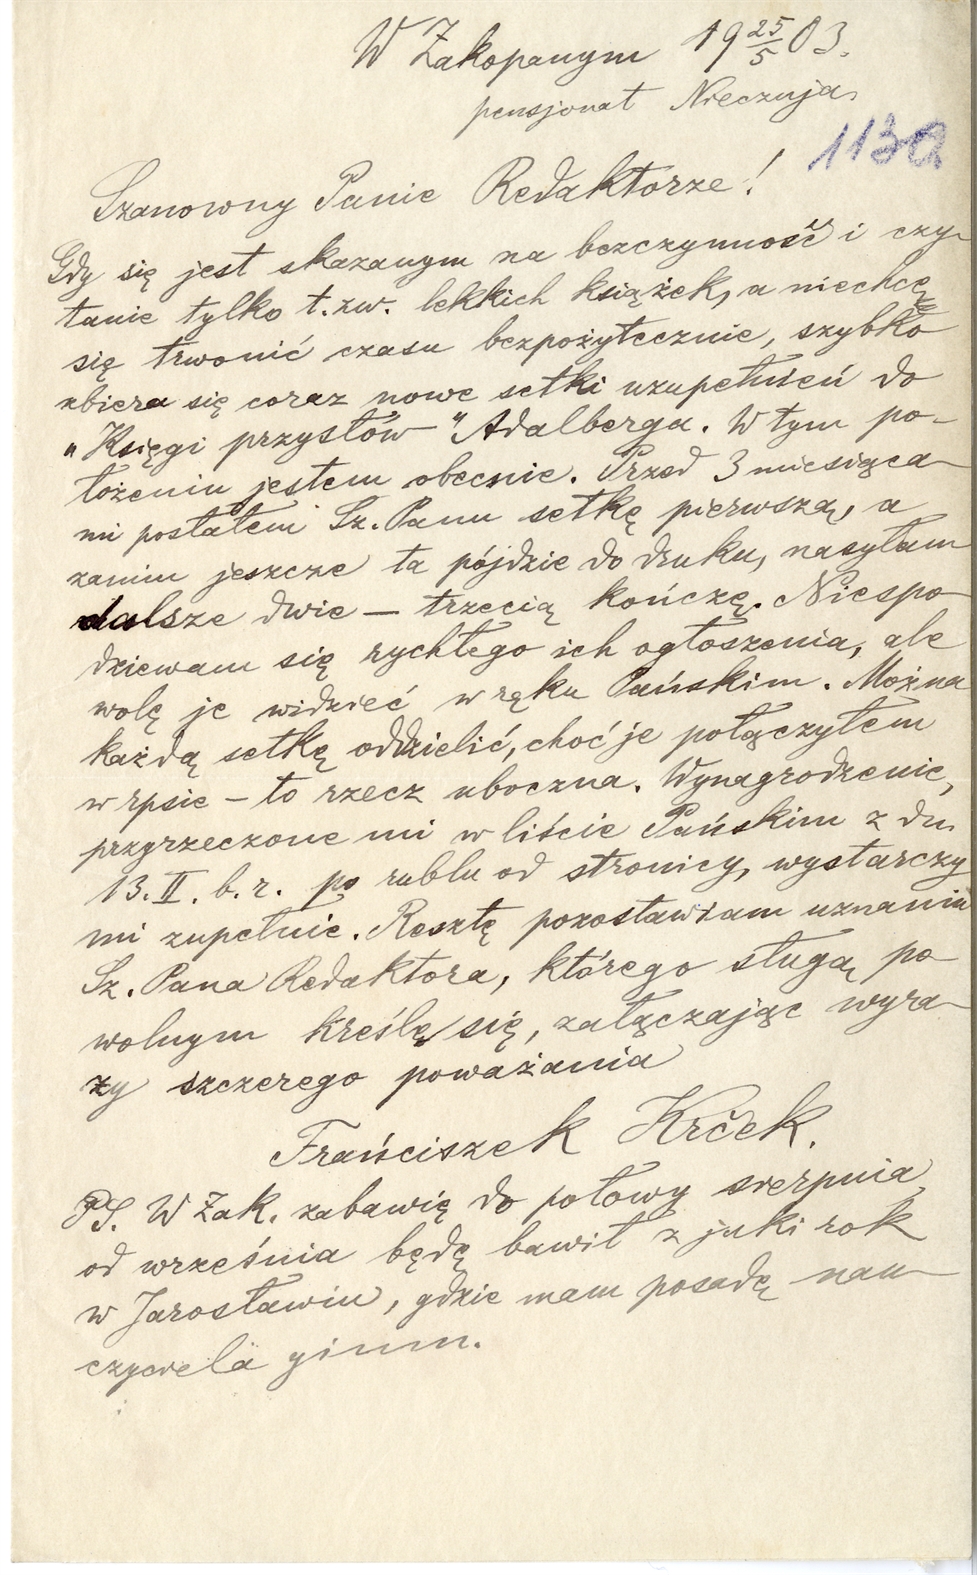 W Zakopanym 19 25/5 03.
pensjonat Nieczuja
113a
Szanowny Panie Redaktorze!
Gdy się jest skazanym na bezczynność i czy-
tanie tylko t. zw. lekkich książek, a niechce
się trwonić czasu bezpożytecznie, szybko
zbiera się coraz nowe setki uzupełnień do
„Księgi przysłów” Adalberga. W tym po-
łożeniu jestem obecnie. Przed 3 miesiąca-
mi posłałem Sz. Panu setkę pierwszą, a
zanim jeszcze ta pójdzie do druku, nasyłam
dalsze dwie — trzecią kończę. Niespo-
dziewam się rychłego ich ogłoszenia, ale
wolę je widzieć w ręku Pańskim. Można
każdą setkę oddzielić, choć je połączyłem
w rpsie — to rzecz uboczna. Wynagrodzenie,
przyrzeczone mi w liście Pańskim z dn.
13. II. b. r. po rublu od stronicy, wystarczy
mi zupełnie. Resztę pozostawiam uznaniu
Sz. Pana Redaktora, którego sługą po-
wolnym kreślę się, załączając wyra-
zy szczerego poważania
Frańciszek Krček.
PS. W Zak. zabawię do połowy sierpnia,
od września będę bawił z jaki rok
w Jarosławiu, gdzie mam posadę nau-
czyciela gimn.